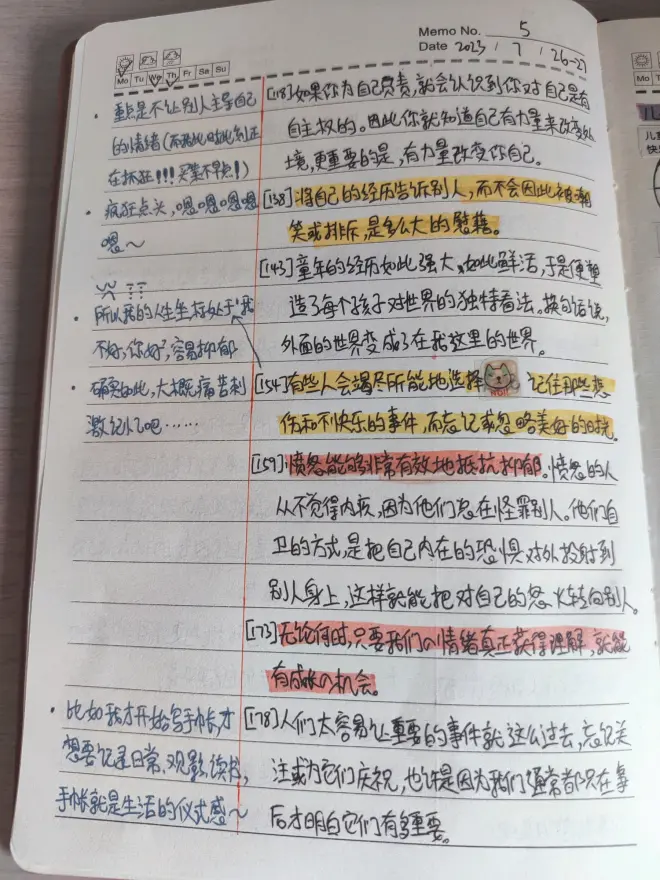 Memo No. 5
Date 2023 / 7 / 26-27
Mo Tu We Th Fr Sa Su
Mo T
重点是不让别人主导自己
的情绪(而我此时此刻正
在抓狂!!!买案不早点!)
疯狂点头,嗯嗯嗯嗯
嗯~
所以我的人生坐标处于"我
不好,你好",容易抑郁
确实如此,大概痛苦刺
激记忆吧……
比如我才开始写手帐,才
想要记录日常、观影、读书,
手帐就是生活的仪式感~
[118]如果你为自己负责,就会认识到你对自己是有
自主权的。因此你就知道自己有力量来改变处
境,更重要的是,有力量改变你自己。
[138]将自己的经历告诉别人,而不会因此被嘲
笑或排斥,是多么大的慰藉。
[143]童年的经历如此强大、如此鲜活,于是便塑
造了每个孩子对世界的独特看法。换句话说,
外面的世界变成了在我这里的世界。
[154]有些人会竭尽所能地选择 记住那些悲
伤和不快乐的事件,而忘记或忽略美好的时光。
[159]愤怒能够非常有效地抵抗抑郁。愤怒的人
从不觉得内疚,因为他们总在怪罪别人。他们自
卫的方式,是把自己内在的恐惧对外投射到
别人身上,这样就能把对自己的怒火转向别人。
[173]无论何时,只要我们の情绪真正获得理解,就能
有成长の机会。
[178]人们太容易让重要的事件就这么过去,忘记关
注或为它们庆祝,也许是因为我们通常都只在事
后才明白它们有多重要。